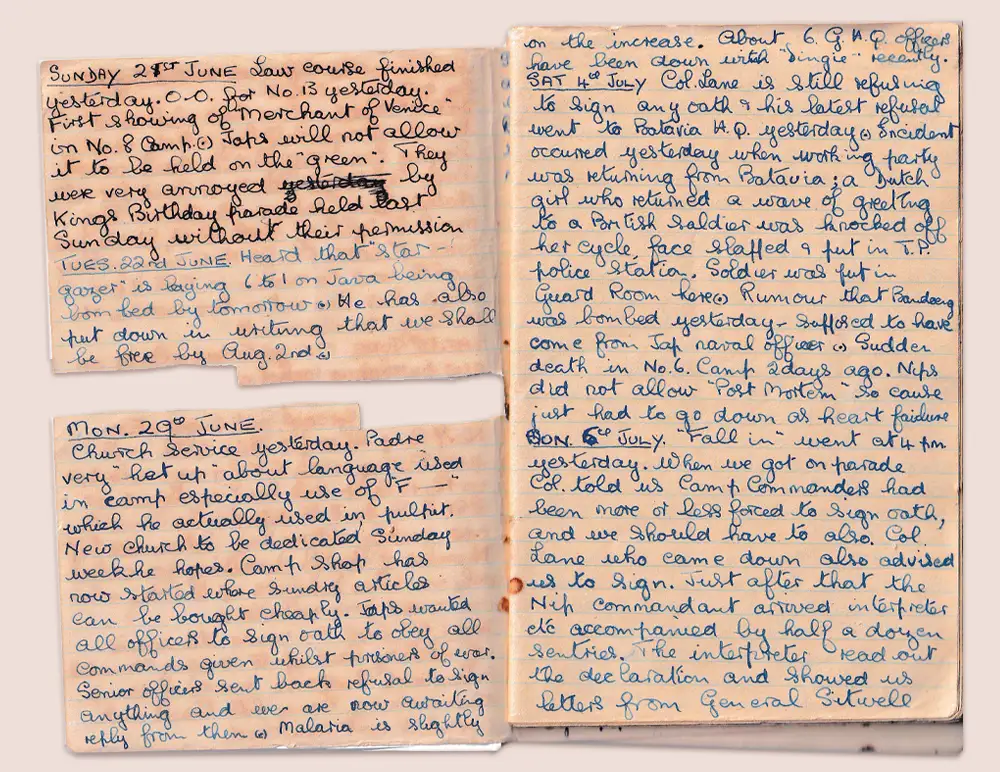 SUNDAY 21ST JUNE Law course finished
yesterday. O.O. for No.13 yesterday.
First showing of "Merchant of Venice"
in No.8 Camp. Japs will not allow
it to be held on the "green". They
were very annoyed yesterday by
Kings Birthday parade held last
Sunday without their permission
TUES. 22nd JUNE. Heard that "star-
gazer" is laying 6 to 1 on Java being
bombed by tomorrow. He has also
put down in writing that we shall
be free by Aug. 2nd.
MON. 29th JUNE.
Church Service yesterday. Padre
very "het up" about language used
in camp especially use of "F —"
which he actually used in pulpit.
New church to be dedicated Sunday
week he hopes. Camp shop has
now started where sundry articles
can be bought cheaply. Japs wanted
all officers to sign oath to obey all
commands given whilst prisoners of war.
Senior officers sent back refusal to sign
anything and we are now awaiting
reply from them. Malaria is slightly
on the increase. About 6. G.H.Q. officers
have been down with "Dingie" recently.
SAT 4th JULY Col. Lane is still refusing
to sign any oath & his latest refusal
went to Batavia H.Q. yesterday. Incident
occurred yesterday when working party
was returning from Batavia; a Dutch
girl who returned a wave of greeting
to a British soldier was knocked off
her cycle, face slapped & put in T.P.
police station. Soldier was put in
Guard Room here. Rumour that Bandoeng
was bombed yesterday - supposed to have
come from Jap naval officer. Sudden
death in No.6. Camp 2 days ago. Nips
did not allow "Post Mortem" so cause
just had to go down as heart failure
SUN. 5th JULY. "Fall in" went at 4 pm
yesterday. When we got on parade
Col. told us Camp Commanders had
been more or less forced to sign oath,
and we should have to also. Col.
Lane who came down also advised
us to sign. Just after that the
Nip commandant arrived interpreter
etc accompanied by half a dozen
sentries. The interpreter read out
the declaration and showed us
letters from General Sitwell